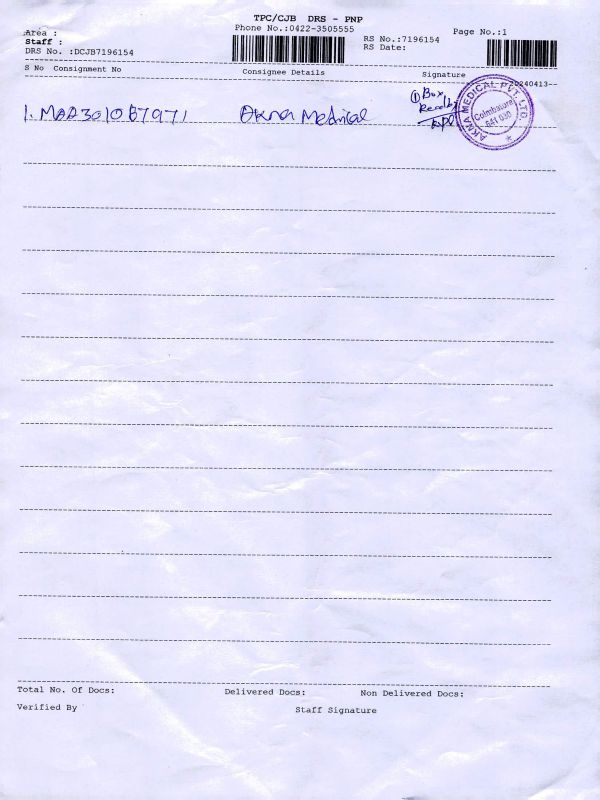 TPC/CJB DRS - PNP
Area :
Phone No.:0422-3505555
Page No.:1
Staff :
RS No.:7196154
DRS No. :DCJB7196154
RS Date:
S No Consignment No Consignee Details Signature
20240413-
1. MAA301087971 Akna Medical
① Box
AKNA MEDICAL PVT. LTD.
Coimbatore
641 030
Total No. Of Docs: Delivered Docs: Non Delivered Docs:
Verified By Staff Signature